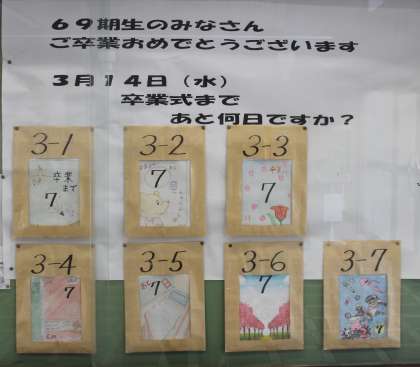 69期生のみなさん
ご卒業おめでとうございます
3月14日（水）
卒業式まで
あと何日ですか？
3-1
3-2
3-3
卒業
まで
7
7
7
3-4
3-5
3-6
3-7
7
7
7
7